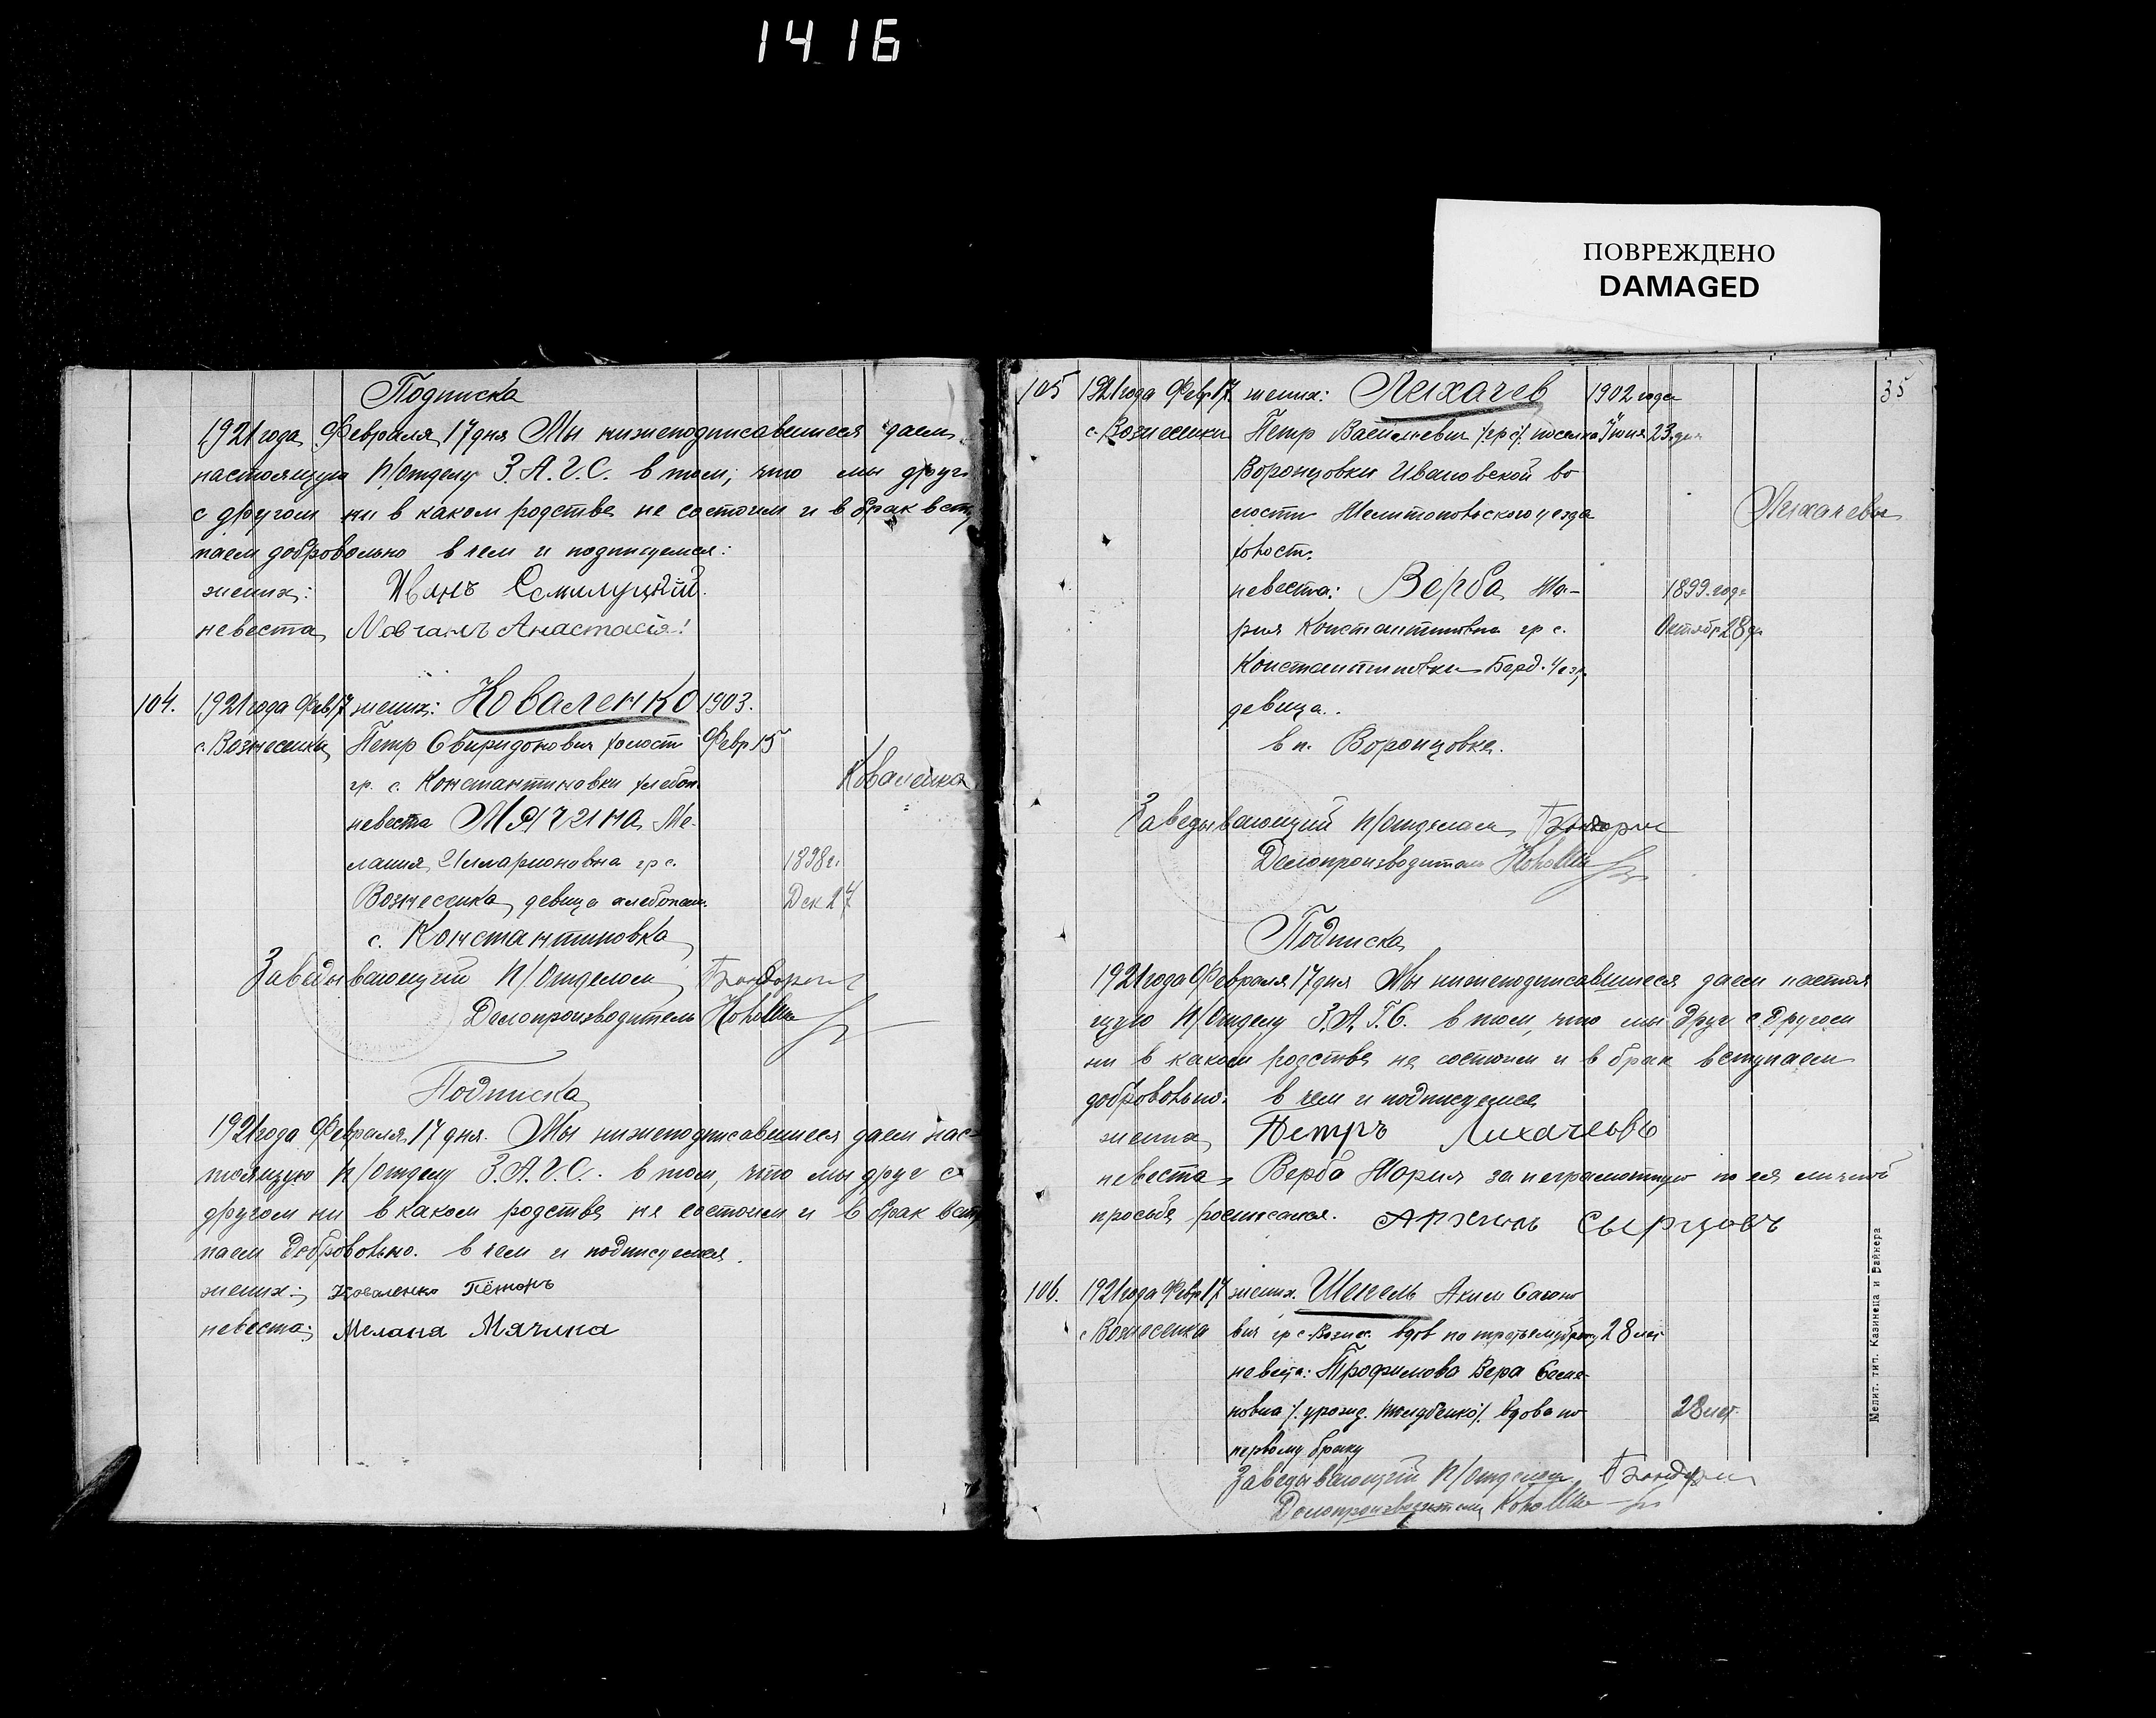 14 16
ПОВРЕЖДЕНО
DAMAGED
Подписка
1921 года Февраля 17 дня Мы нижеподписавшиеся даем
настоящую п/отделу З.А.Г.С. в том, что мы друг
с другом ни в каком родстве не состоим и в брак всту
паем добровольно в чем и подписуемся:
жених: Иванъ Семилуцкий.
невеста Анастасія!
104. 1921 года Фев 17 жених: Коваленко 1903.
с. Вознесенка Петр Свиридонович холост Февр 15
гр. с. Константиновки хлебоп.
Коваленко
невеста Мячина Ме-
лания Илларионовна гр с.
1898 г.
Вознесенка девица хлебопаш.
Дек 27
с. Константиновка
Заведывающий п/отделом
Делопроизводитель
Подписка
1921 года Февраля 17 дня. Мы нижеподписавшиеся даем нас-
тоящую п/отделу З.А.Г.С. в том, что мы друг с
другом ни в каком родстве не состоим и в брак всту
паем добровольно. в чем и подписуемся.
жених: Коваленко Пётръ
невеста: Мелана Мячина
35
105 1921 года Февр 17. жених: Лихачев 1902 года
с. Вознесенки Петр Васильевич гр с/. поселка Июня 23 дня
Воронцовки Ивановской во
лости Мелитопольского уезда
Лихачевы
холост.
невеста: Верба Ма-
1899 год
рия Константиновна гр с.
Октябр 28 дн
Константиновки Берд. уезд.
девица.
в п. Воронцовке.
Заведывающий п/отделом
Делопроизводитель
Подписка
1921 года Февраля 17 дня Мы нижеподписавшиеся даем настоя
щую п/отделу З.А.Г.С. в том, что мы друг с другом
ни в каком родстве не состоим и в брак вступаем
добровольно. в чем и подписуемся
жених Петръ Лихачевъ
невеста Верба Мария за неграмотную по ея личной
просьбе росписался. Сырцовъ
106. 1921 года Февр 17 жених. Шепель Аким Сазоно
с Вознесенка вич гр с. Вознес. вдов по третьему браку 28 лет
невеста: Трофимова Вера
новна /. урожд. /. вдова по
28 лет.
первому браку
Заведывающий п/отделом
Делопроизводитель
Мелит. тип. Казинеца и Вайнера